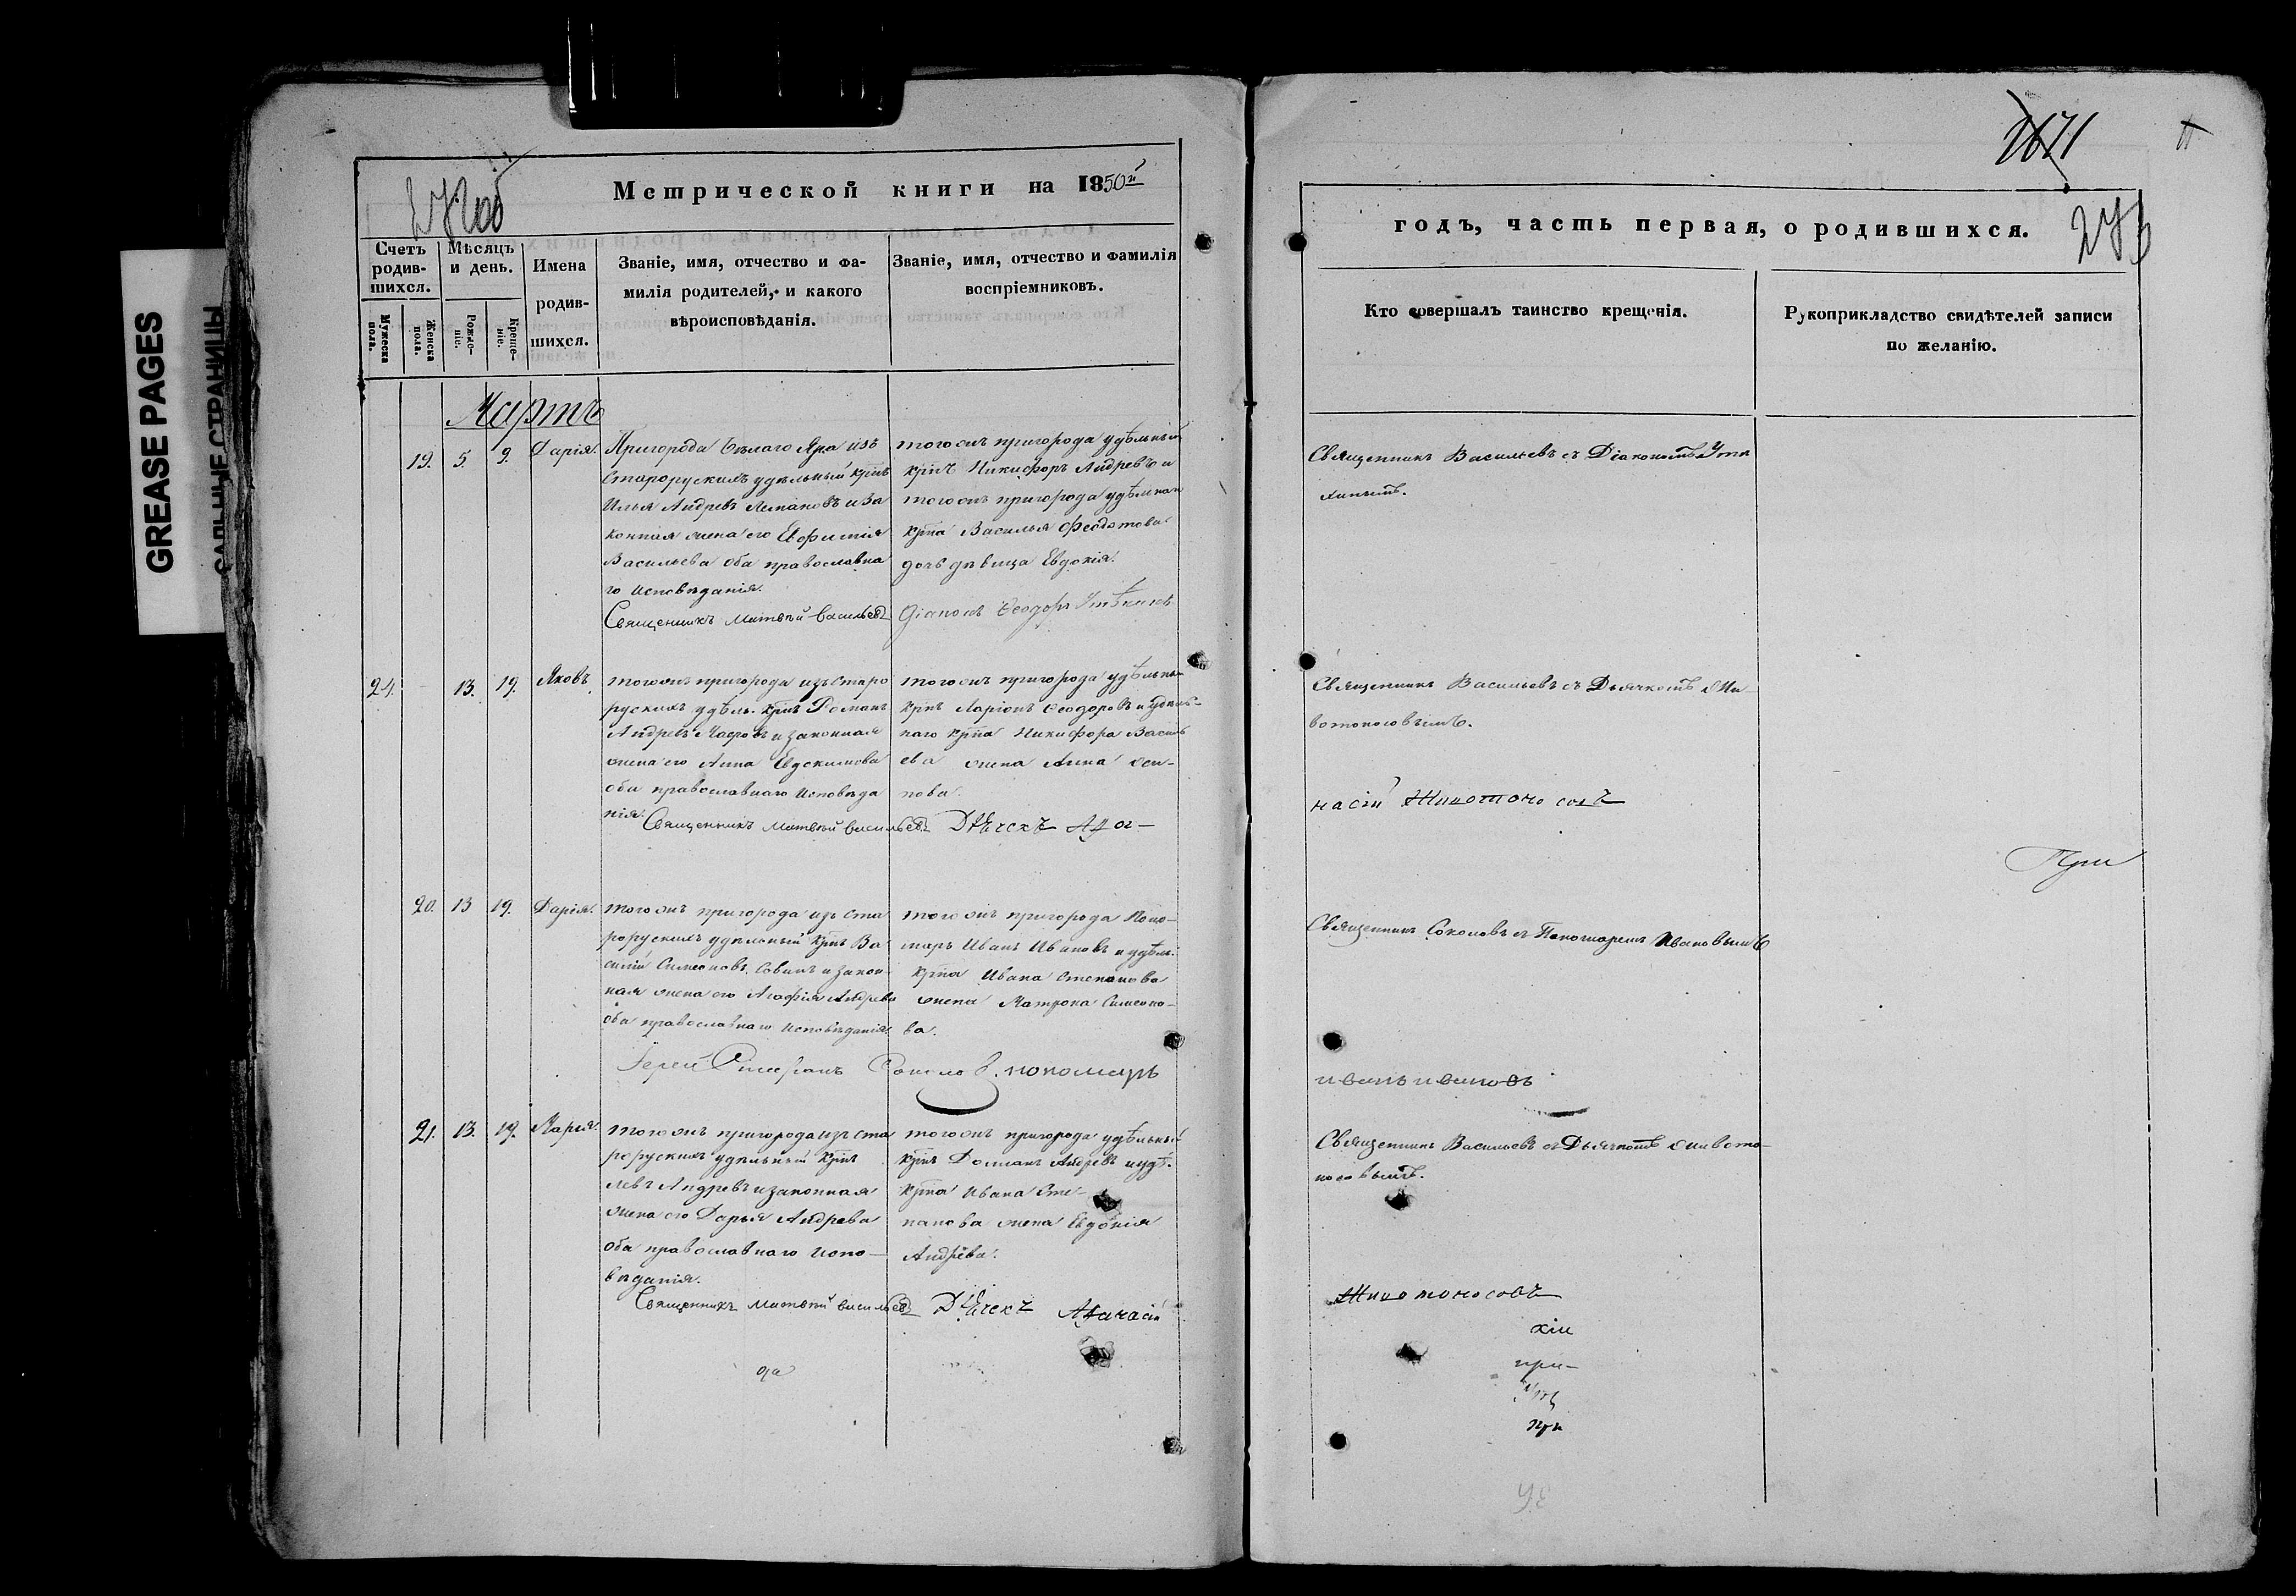 GREASE PAGES
САЛЬНЫЕ СТРАНИЦЫ
Метрической книги на 1850й
Счетъ родив-шихся.
Мужеска пола.
Женска пола.
Мѣсяцъ и день.
Рожде-ніе.
Креще-ніе.
Имена
родив-
шихся.
Званіе, имя, отчество и фа-
милія родителей, и какого
вѣроисповѣданія.
Званіе, имя, отчество и фамилія
воспріемниковъ.
Мартъ
19. 5. 9. Дарія.
Пригорода Бѣлаго Яра изъ
старорускихъ удѣльный крнъ
Илья Андревъ и за
конная жена его Евфимія
Васильева оба православна
го исповѣданія.
Священникъ Матвѣй Васильевъ
того жъ пригорода удѣльный
крнъ Никифоръ Андревъ и
того жъ пригорода удѣльнаго
крна Василья Феодотова
дочь дѣвица Евдокія.
Діаконъ Феодоръ
24. 13. 19. Яковъ.
того жъ пригорода изъ старо
рускихъ удѣль. крнъ Романъ
Андревъ и законная
жена его Анна Евдокимова
оба православнаго исповѣда
нія.
Священникъ Матвѣй Васильевъ
того жъ пригорода удѣльны
крнъ Ларіонъ Феодоровъ и удѣль-
наго крна Никифора Василь
ева жена Анна Оси-
пова.
Дьячекъ Афа-
20. 13 19. Дарія.
того жъ пригорода изъ ста
рорускихъ удѣльный крнъ Ва
силій Симеоновъ и закон-
ная жена его Агафія Андрева
оба православнаго исповѣданія.
Іерей Стефанъ Соколовъ.
того жъ пригорода Поно-
марь Иванъ Ивановъ и удѣль.
крна Ивана Степанова
жена Матрона Симеоно-
ва.
пономарь
21. 13. 19. Марія.
того жъ пригорода изъ ста
рорускихъ удѣльный крнъ
Левъ Андревъ и законная
жена его Дарья Андрева
оба православнаго испо-
вѣданія.
Священникъ Матвѣй Васильевъ
того жъ пригорода удѣльный
крнъ Андревъ и удѣ.
крна Ивана Сте-
панова жена Евдокія
Андрева.
Дьячекъ Афанасій
да
годъ, часть первая, о родившихся.
273
Кто совершалъ таинство крещенія.
Рукоприкладство свидѣтелей записи
по желанію.
Священникъ Васильевъ съ Діакономъ
Священникъ Васильевъ съ Дьячкомъ Жи-
вотоносовымъ.
насій Животоносовъ
При
Священникъ Соколовъ съ Пономаремъ Ивановымъ
иванъ ивановъ
Священникъ Васильевъ съ Дьячкомъ Живото-
носовымъ.
Животоносовъ
хіи
при-
при